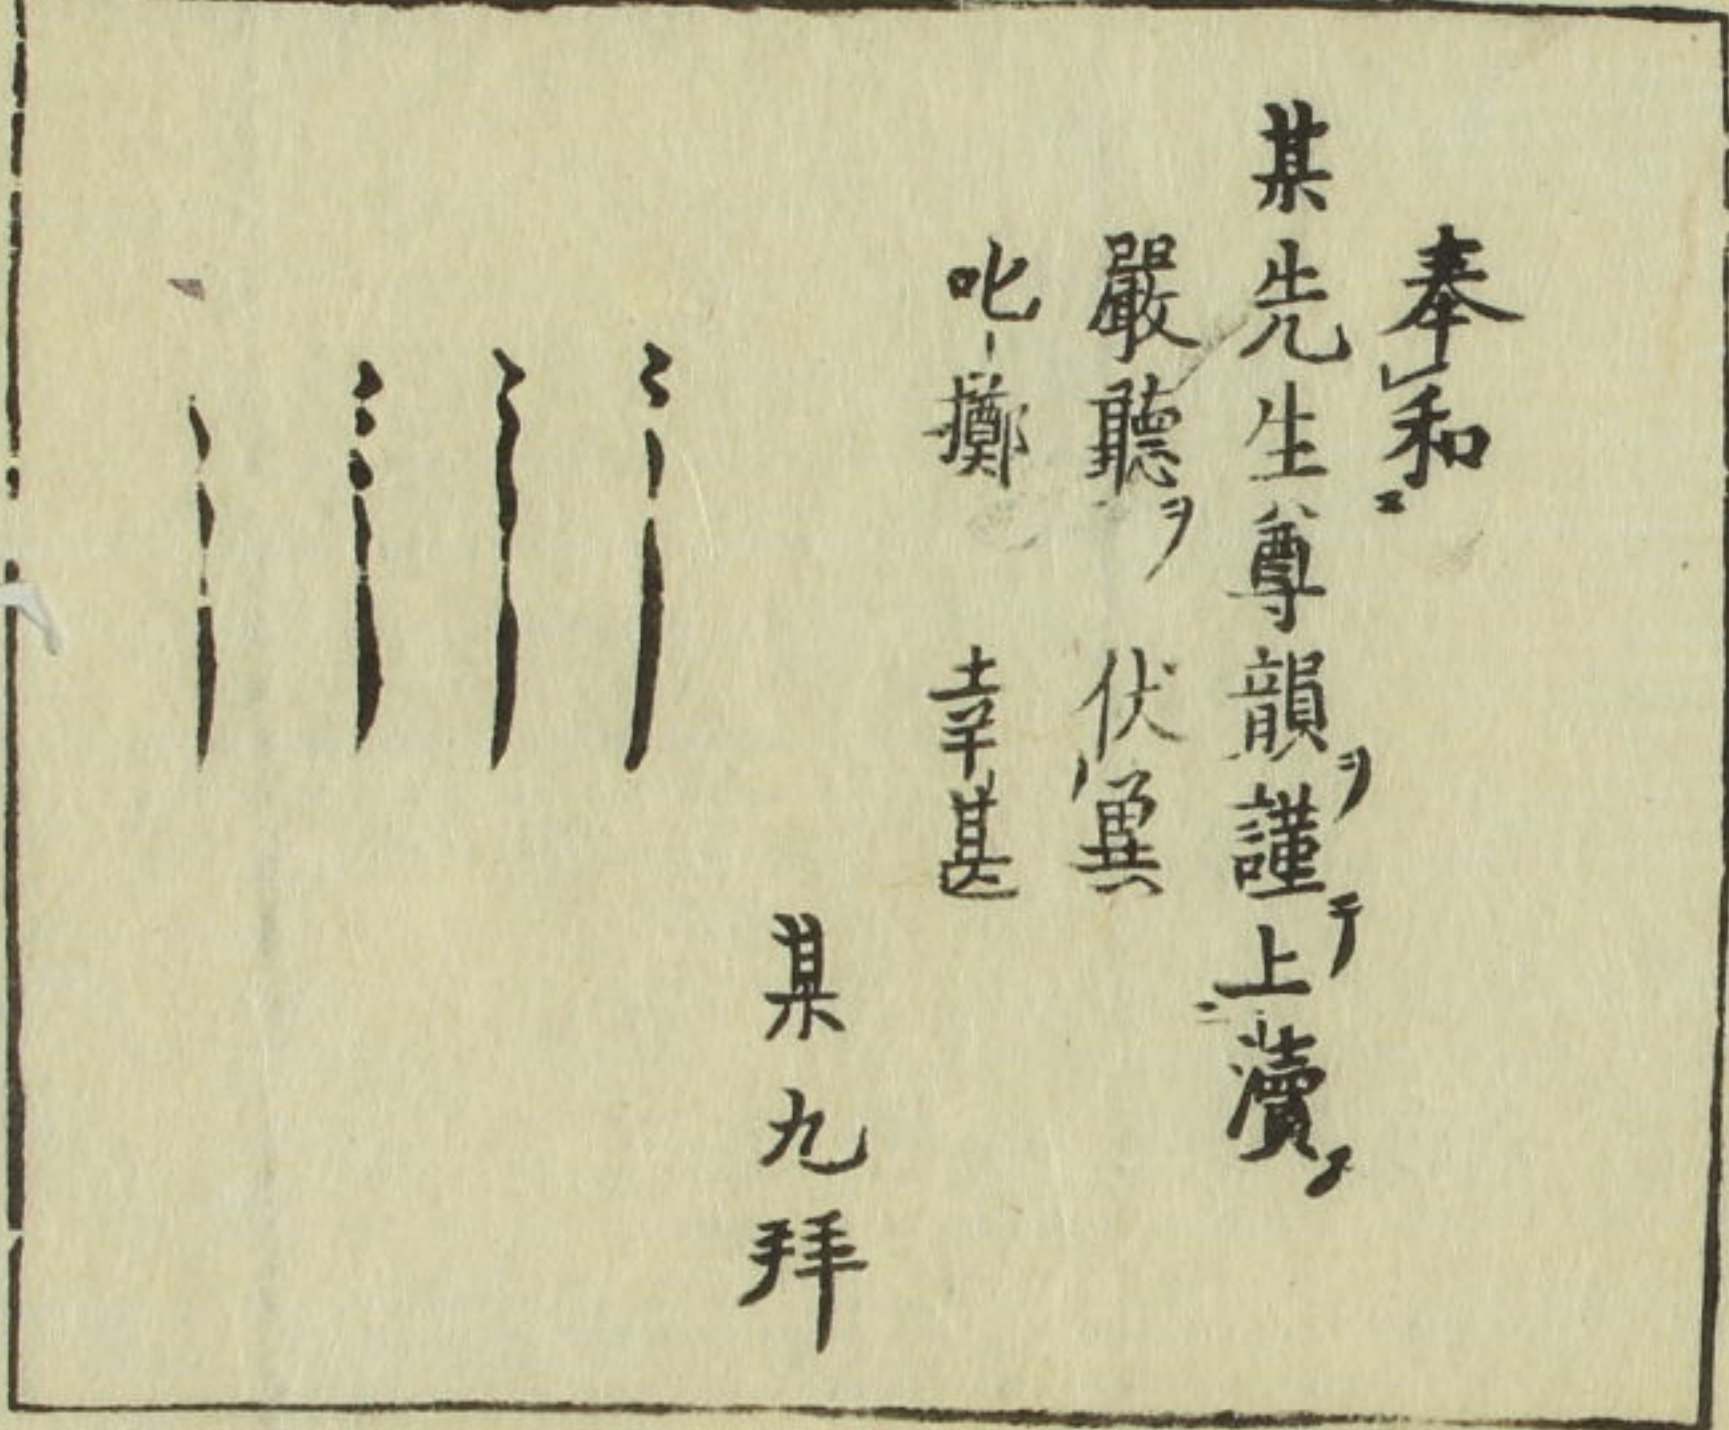 奉和
某先生尊韻ヲ謹テ上瀆
嚴聽ヲ 伏冀
叱擲 幸甚
某九拜